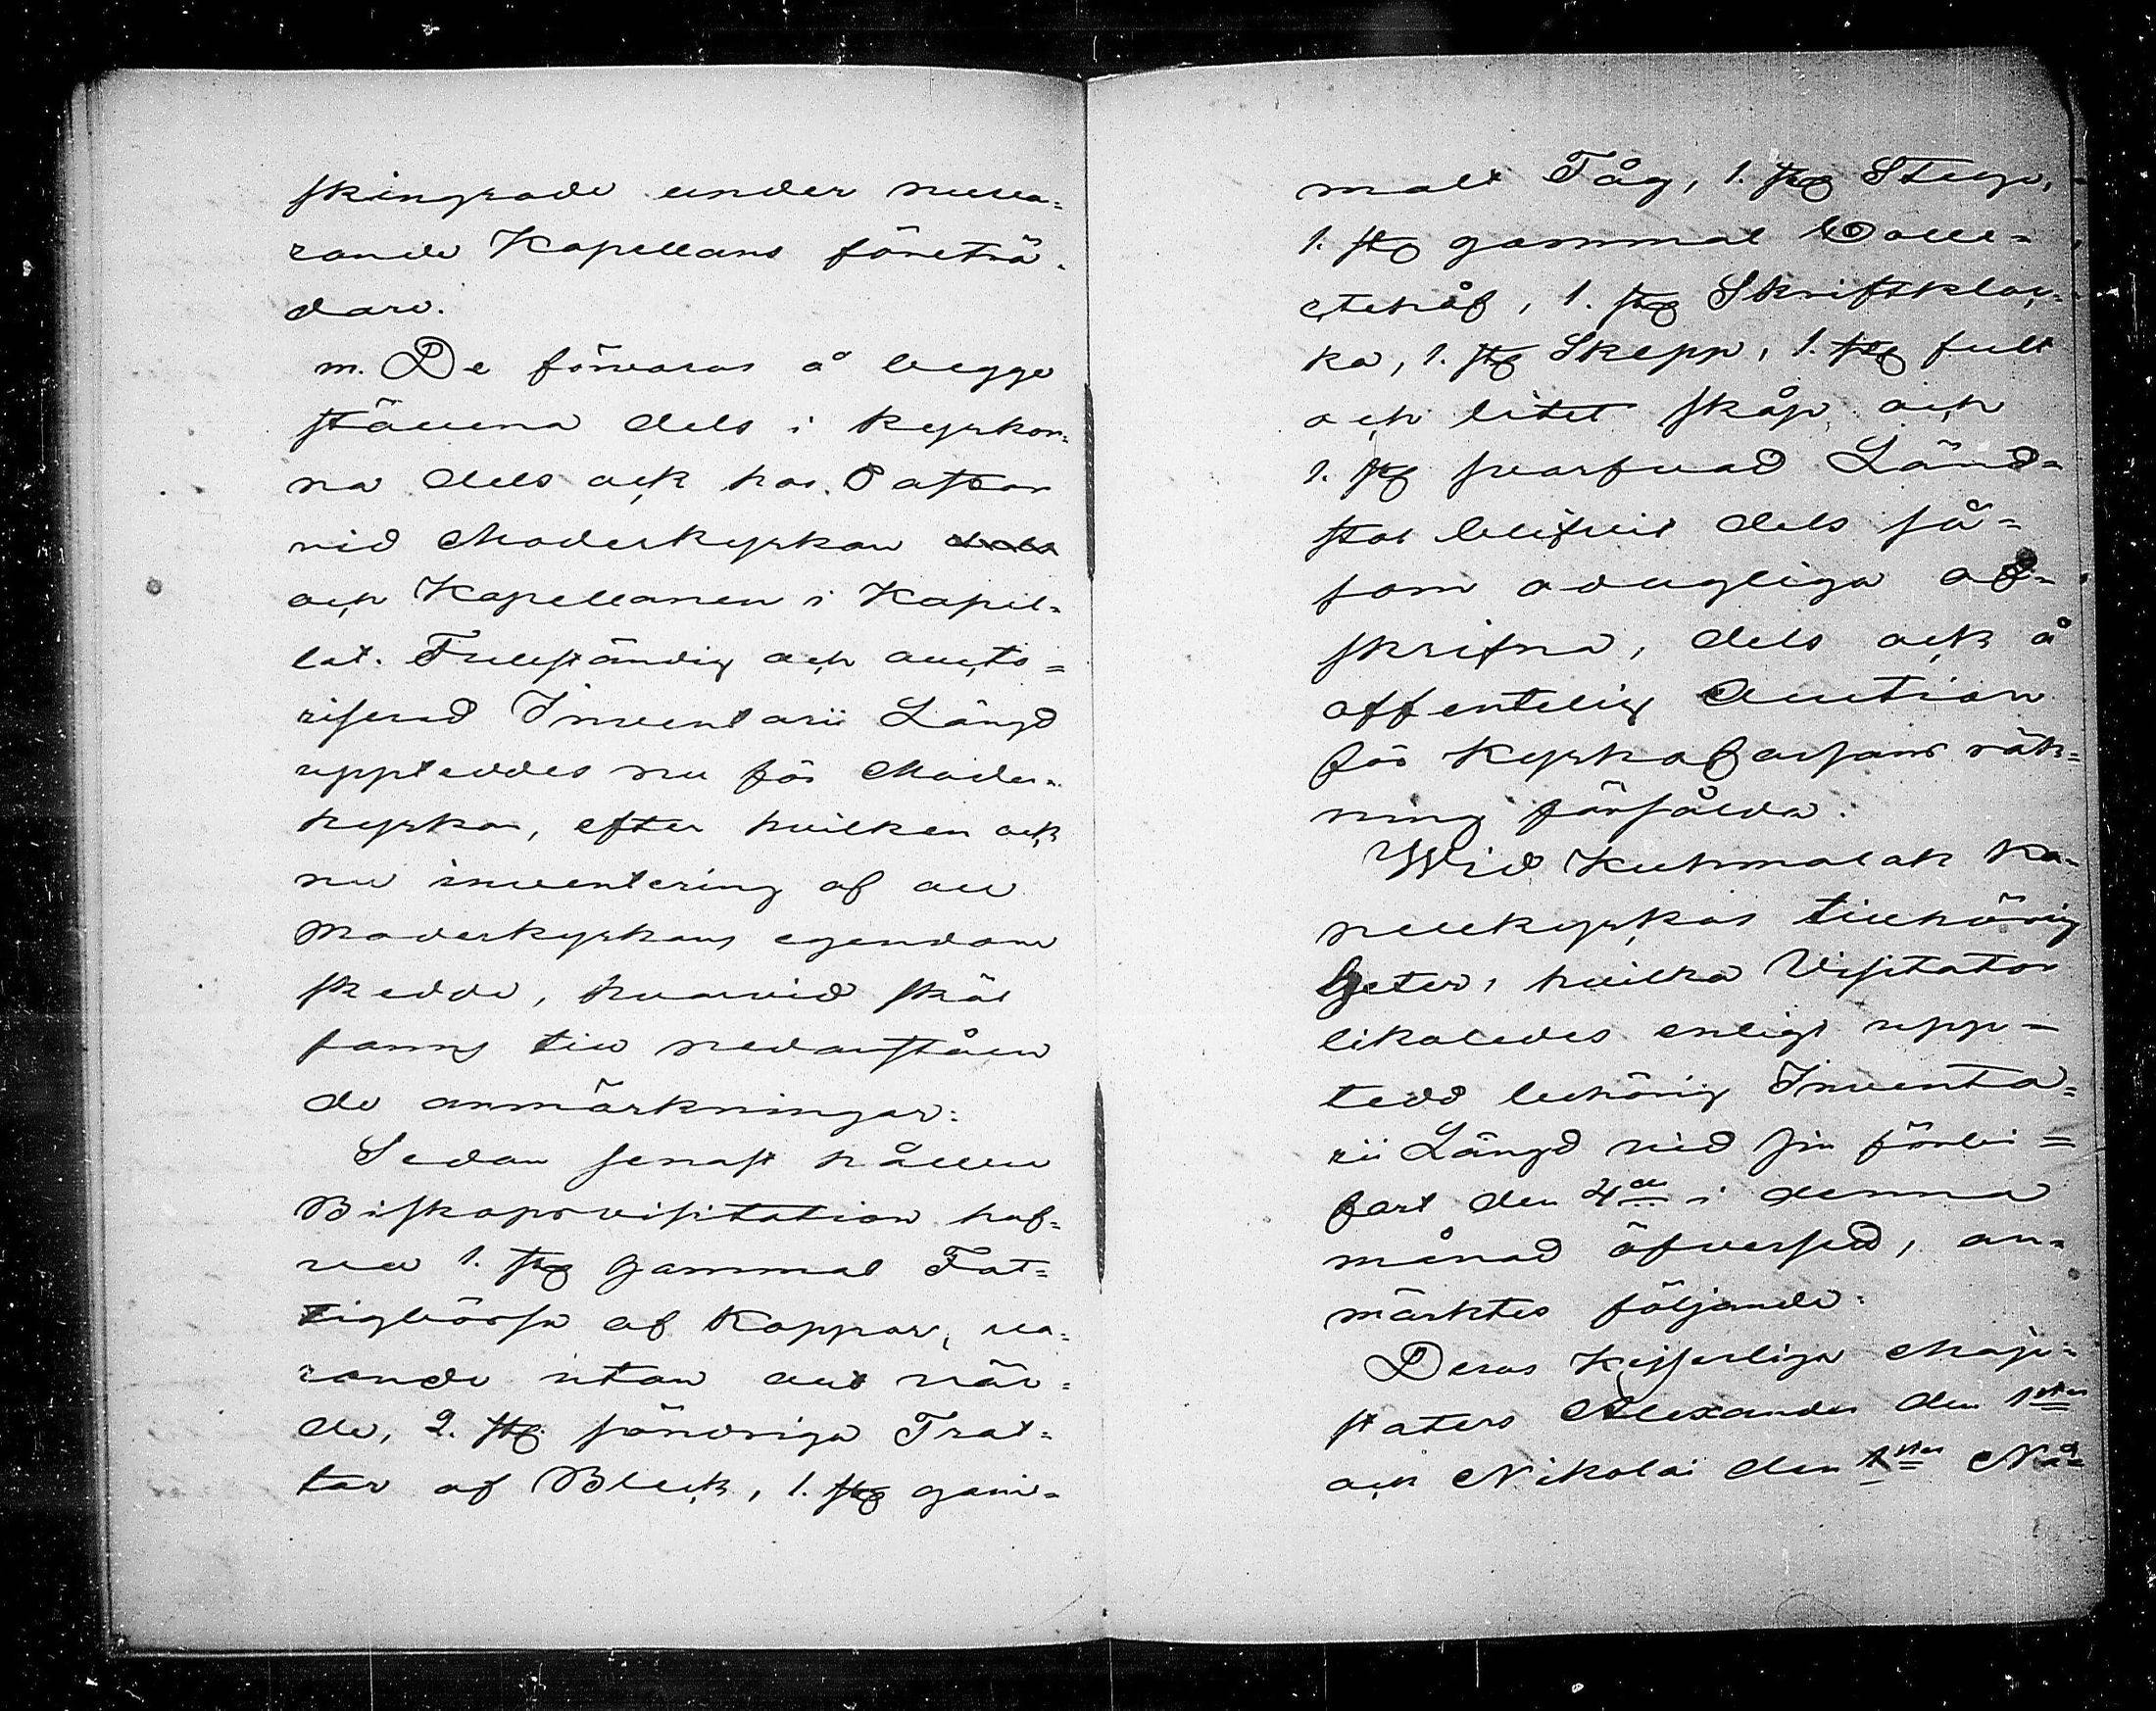 skingrade under nuva-
rande Kapellans företrä-
dare.
m. De förvaras å begge
ställena dels i kyrkor-
na dels ock hos Pastor
vid Moderkyrkan dels
och Kapellanen i Kapel-
let. Fullständig och aucto-
riserad Inventarii Längd
uppteddes nu för Moder-
kyrkan, efter hvilken ock
nu inventering af all
Moderkyrkans egendom
skedde, hvarvid skäl
fanns till nedanståen
de anmärkningar:
Sedan senast hållen
Biskopsvisitation haf-
va 1. st. Gammal Fat-
tigbössa af Koppar, va-
rande utan allt vär-
de, 2. st. söndriga Trat-
tar af Bleck, 1. st. gam-
malt Tåg, 1. st. Stege,
1. st. gammal Colle-
ctehåf, 1. st. Skriftkloc-
ka, 1. st. Skepp, 1. st. fult
och litet skåp och
1. st. svarfvad Länd-
stol blifvit dels så-
som odugliga af-
skrifna, dels ock å
offentelig Auction
för Kyrkocassans räk-
ning försålda.
Wid Kuhmalah Ka-
pellkyrkas tillhörig
heter, hvilka Visitator
likaledes enligt upp-
tedd behörig Inventa-
rii Längd vid sin förbi-
fart den 4de i denna
månad öfversedd, an-
märktes följande:
Deras Kejserliga Maje-
stäters Alexander den 1stes
och Nikolai den 1stes Nå-